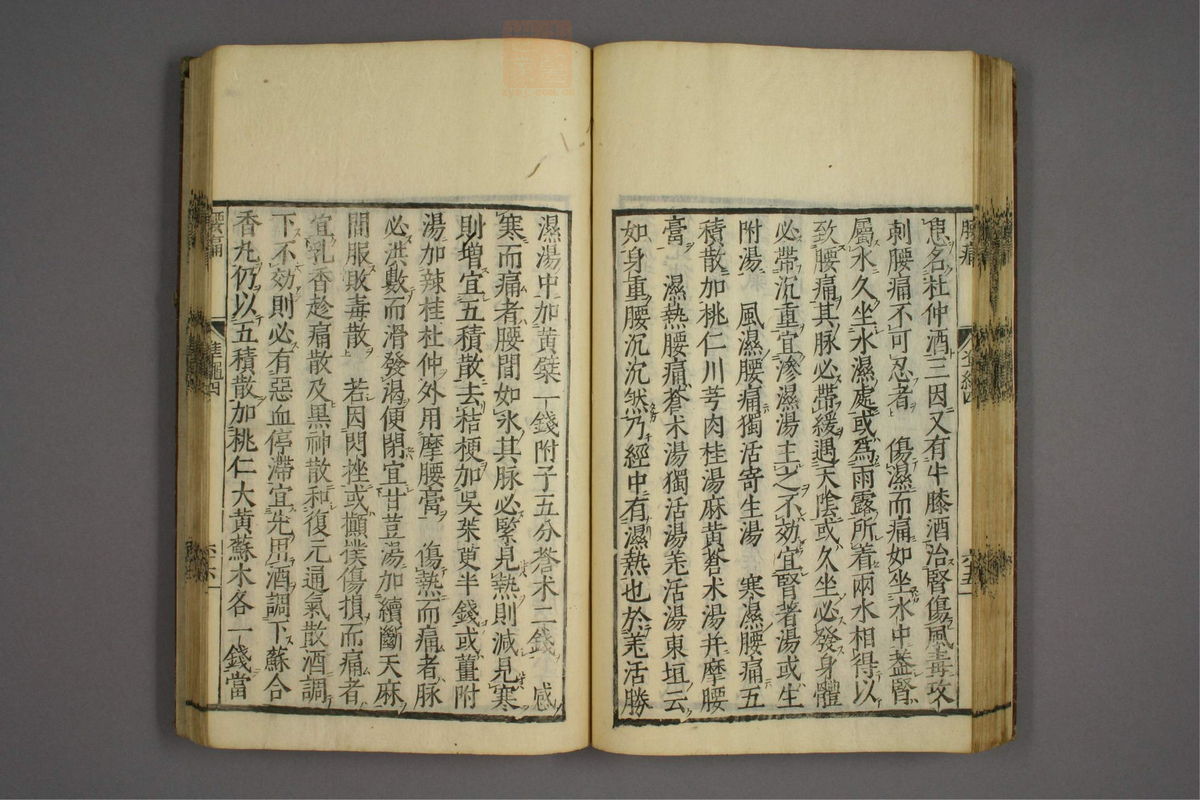 患名杜仲酒三因又有牛膝酒治腎傷風毒攻
刺腰痛不可忍者　傷濕而痛如坐水中蓋腎
屬水久坐水濕處或爲雨露所着兩水相得以
致腰痛其脉必帶緩遇天陰或久坐必發身體
必帶沉重宜滲濕湯主之不効宜腎著湯或生
附湯　風濕腰痛獨活寄生湯　寒濕腰痛五
積散加桃仁川芎肉桂湯麻黄蒼术湯并摩腰
膏　濕熱腰痛蒼术湯獨活湯羌活湯東垣云
如身重腰沉沉然乃經中有濕熱也於羌活勝
濕湯中加黄蘗一錢附子五分蒼术二錢　感
寒而痛者腰間如氷其脉必緊見熱則減見寒
則增宜五積散去桔梗加吳茱萸半錢或薑附
湯加辣桂杜仲外用摩腰膏　傷熱而痛者脉
必洪數而滑發渴便閉宜甘荳湯加續斷天麻
間服敗毒散　若因閃挫或攧撲傷損而痛者
宜乳香趁痛散及黒神散和復元通氣散酒調
下不効則必有惡血停滯宜先用酒調下蘇合
香丸仍以五積散加桃仁大黄蘇木各一錢當
腰痛
腰痛